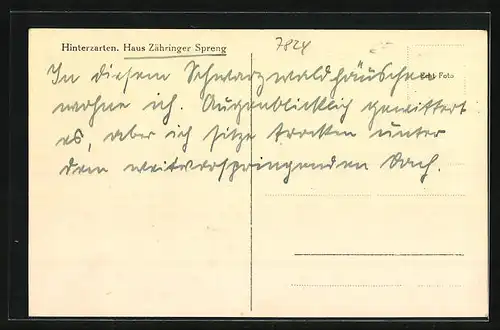 Hinterzarten. Haus Zähringer Spreng
7824
Foto
In diesem Schwarzwaldhäuschen
wohne ich. Augenblicklich gewittert
es, aber ich sitze trocken unter
dem weitvorspringenden Dach.